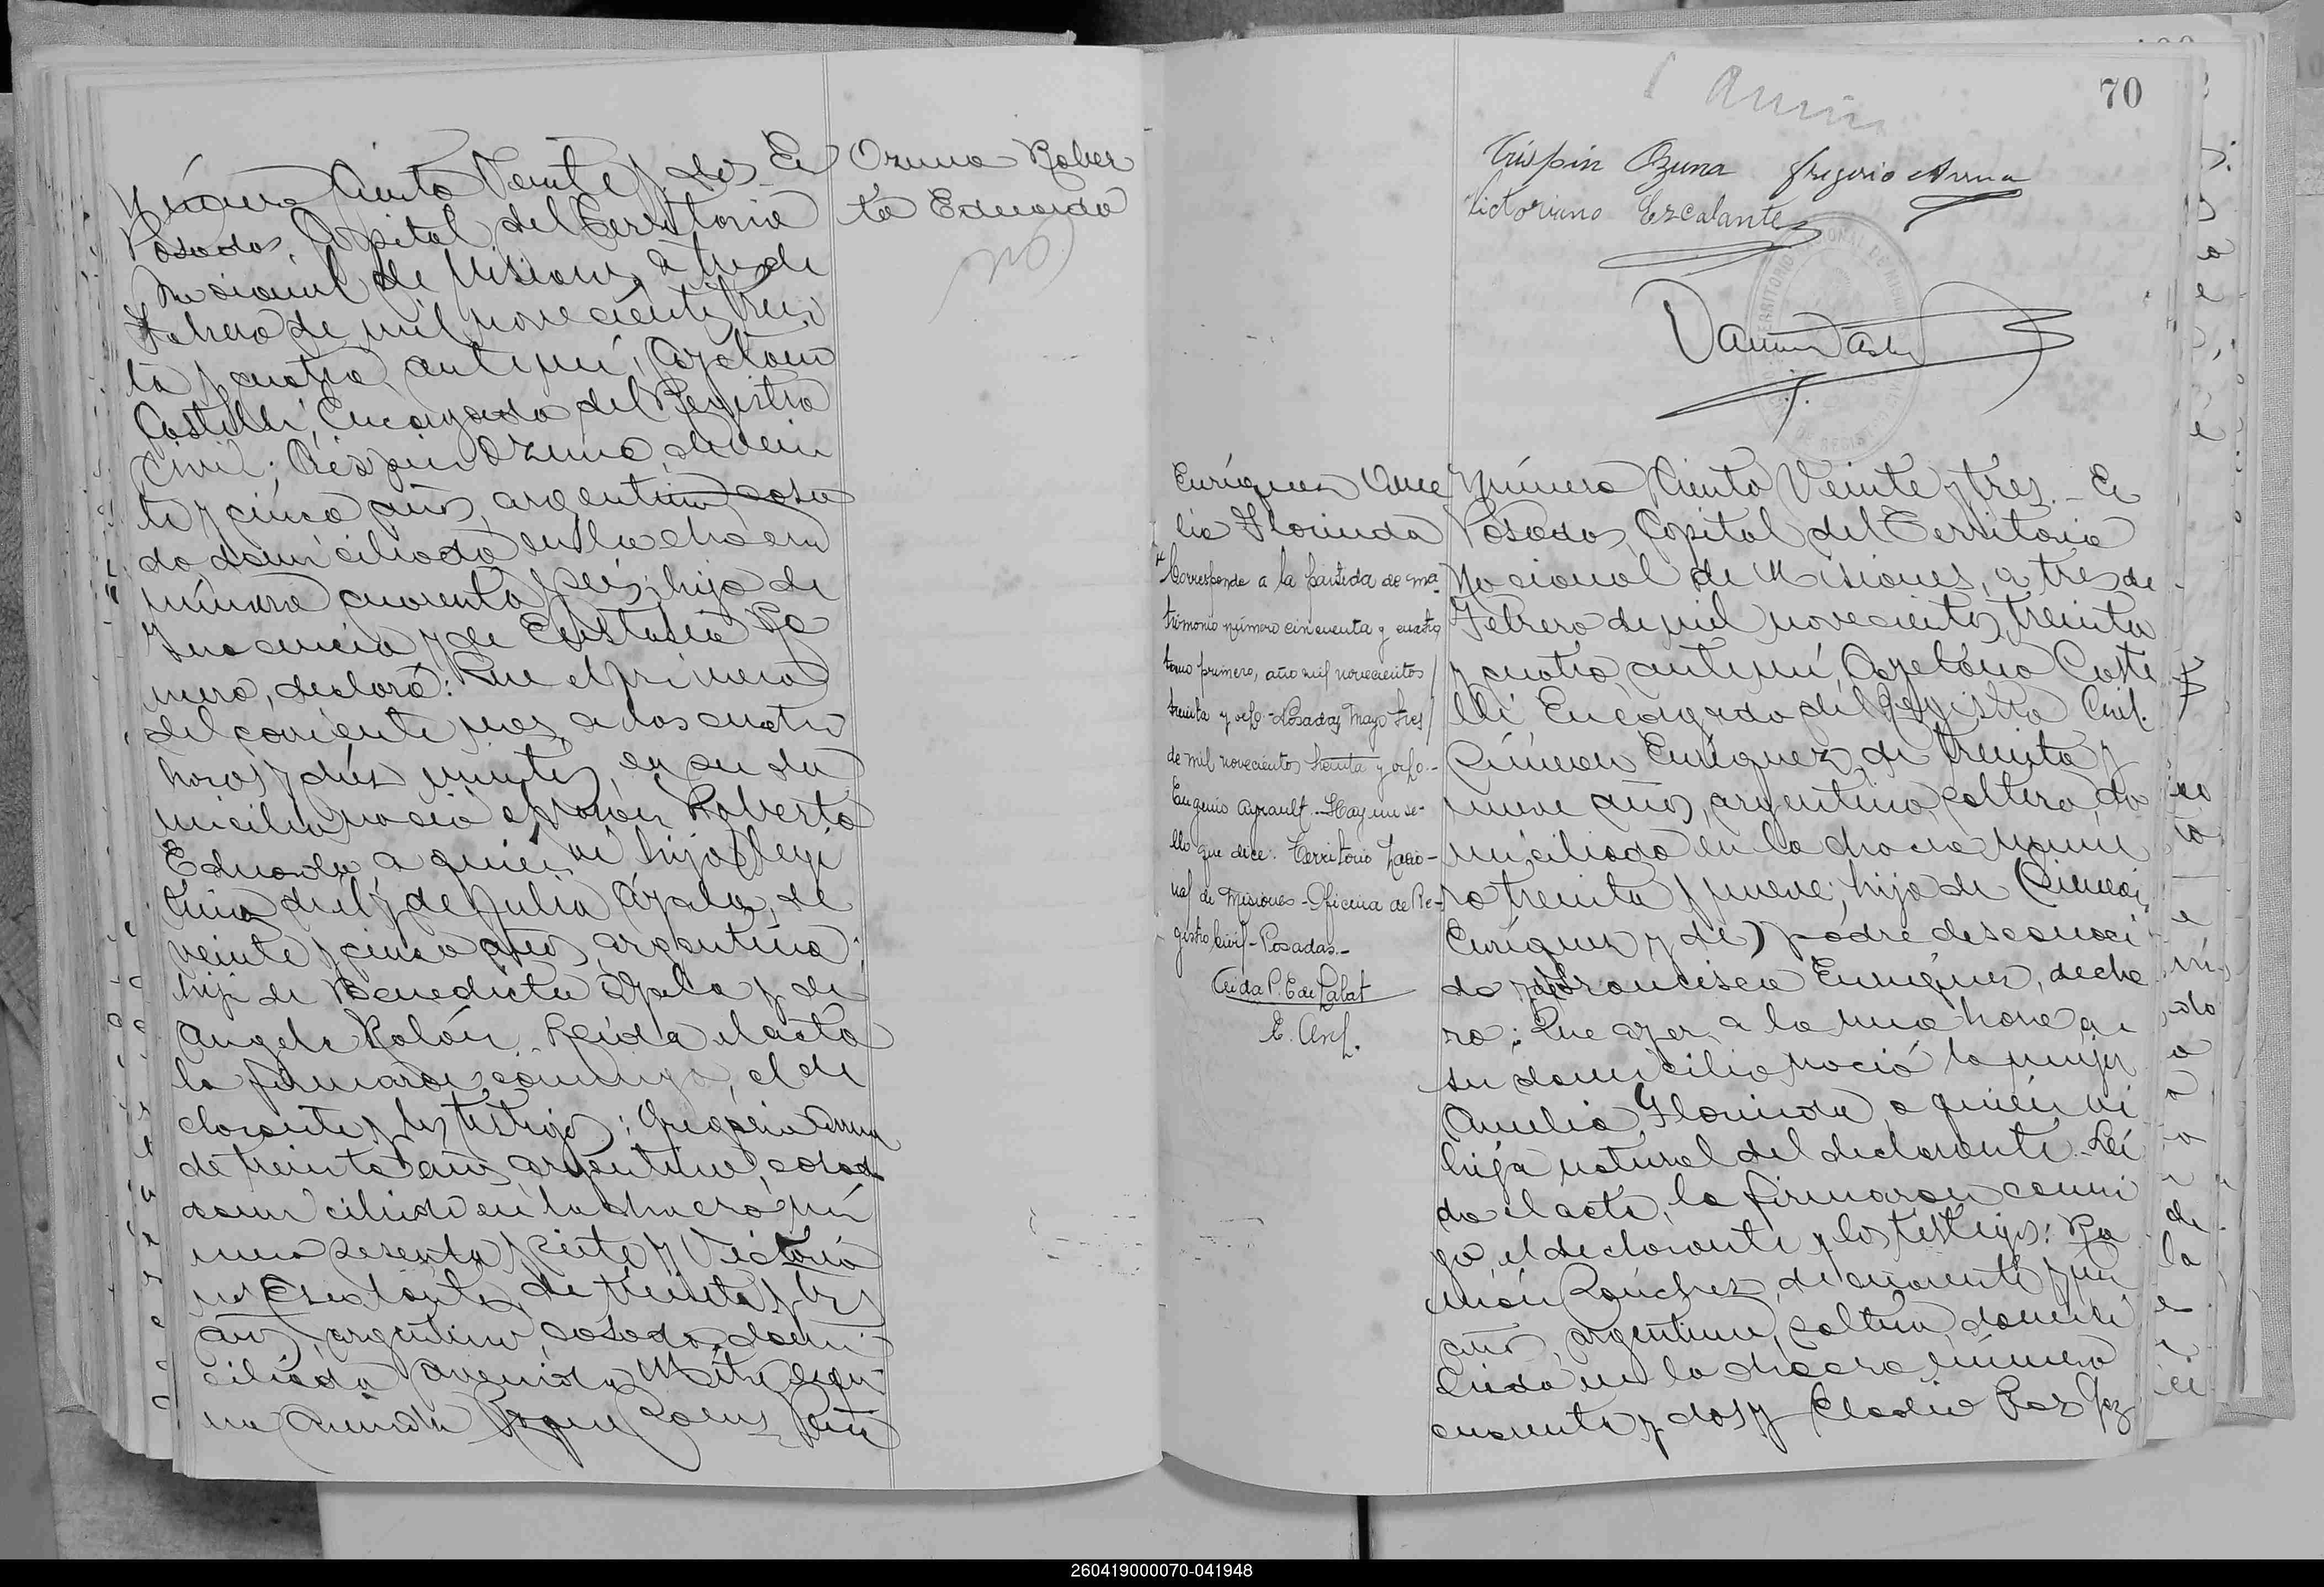 Número Ciento Veinte y dos. En
Posadas, Capital del Territorio
Nacional de Misiones, a tres de
Febrero de mil novecientos trein
ta y cuatro, ante mí, Cayetano
Castelli, Encargado del Registro
Civil; Crispin Ozuna, de vein
te y cinco años, argentino, casa
do domiciliado en la chacra
número cuarenta y seis; hijo de
Inocencia y de Eustasia Ro
mero, declaró: Que el primero
del corriente mes, a las cuatro
horas y diez minutos, en su do
micilio nació el varón Roberto
Eduardo, a quien vi hijo legí
timo de él y de Julia Ayala, de
veinte y cinco años, argentina;
hija de Benedicta Ayala y de
Angel Rolón. Leída el acta
la firmaron conmigo, el de
clarante y los testigos: Gregorio
de treinta años, argentino, casado
domiciliado en la chacra nú
mero sesenta y siete y Victoria
no Escalante, de treinta y tres
años, argentino, casado, domi
ciliado Avenida Mitre esqui
na Avenida Roque Saenz Peña
Ozuna Rober
to Eduardo
70
Crispin Ozuna Gregorio
Victoriano Ezcalante
Enríquez Ame
lia Florinda
Corresponde a la partida de ma
trimonio número cincuenta y cuatro
tomo primero, año mil novecientos
treinta y ocho. Posadas, Mayo tres
de mil novecientos treinta y ocho.-
Eugenio Ayrault.- Hay un se-
llo que dice: Territorio Nacio-
nal de Misiones - Oficina de Re-
gistro Civil - Posadas.-
E.
Número Ciento Veinte y tres.- En
Posadas, Capital del Territorio
Nacional de Misiones, a tres de
Febrero de mil novecientos treinta
y cuatro, ante mí, Cayetano Caste
lli Encargado del Registro Civil.
Simon Enríquez, de treinta y
nueve años, argentino, soltero, do
miciliado en la chacra núme
ro treinta y nueve; hijo de (Simon
Enríquez y de) padre desconoci
do y de Francisca Enríquez, decla
ro: Que ayer a la una hora en
su domicilio nació la mujer
Amelia Florinda, a quién vi
hija natural del declarante. Leí
da el acta, la firmaron conmi
go, el declarante y los testigos: Ra
món Sanchez, de cuarenta y un
años, argentino, soltero, domici
liado en la chacra número
cuarenta y dos y Eladio
260419000070-041948